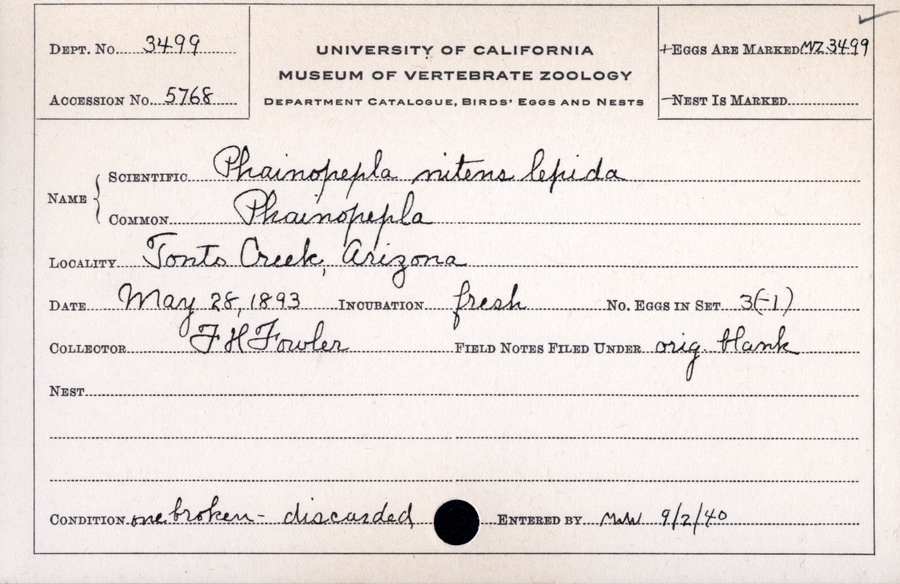 DEPT. NO. 3499
ACCESSION NO. 5768
UNIVERSITY OF CALIFORNIA
MUSEUM OF VERTEBRATE ZOOLOGY
DEPARTMENT CATALOGUE, BIRDS' EGGS AND NESTS
+EGGS ARE MARKED MVZ 3499
-NEST IS MARKED
NAME
SCIENTIFIC Phainopepla nitens lepida
COMMON Phainopepla
LOCALITY Tonto Creek, Arizona
DATE May 28, 1893 INCUBATION fresh NO. EGGS IN SET 3(-1)
COLLECTOR F H Fowler FIELD NOTES FILED UNDER orig. blank
NEST
CONDITION one broken - discarded ENTERED BY 9/2/40